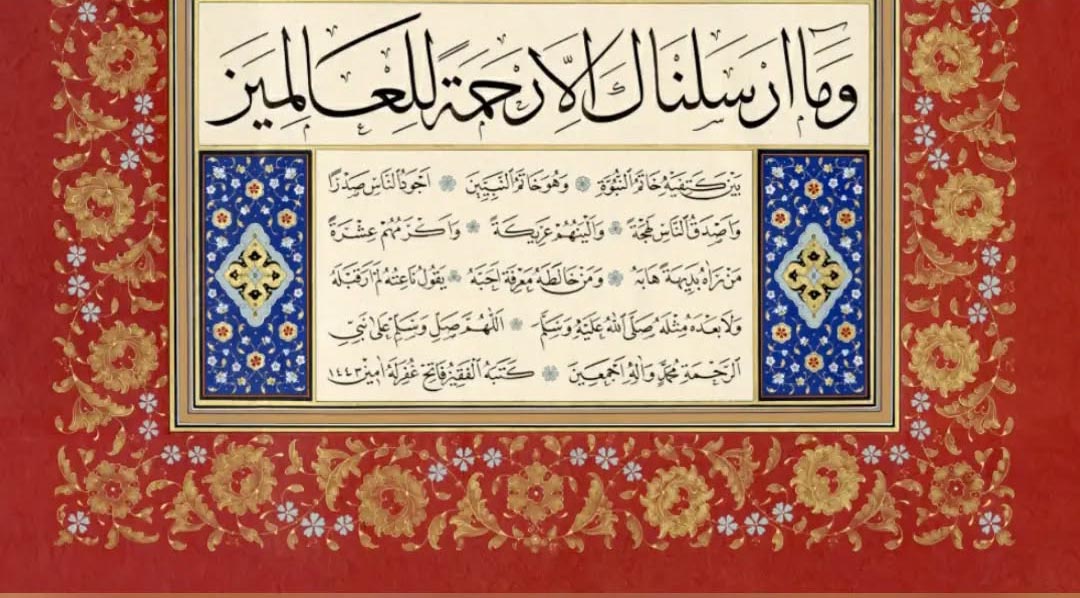 وما ارسلناك الا رحمة للعالمين
بين كتفيه خاتم النبوة وهو خاتم النبيين اجود الناس صدرا
واصدق الناس لهجة والينهم عريكة واكرمهم عشرة
من رآه بديهة هابه ومن خالطه معرفة احبه يقول ناعته لم ار قبله
ولا بعده مثله صلى الله عليه وسلم اللهم صل وسلم على نبي
الرحمة محمد وآله اجمعين كتبه الفقير فاتح غفر له امين ١٤٤٣